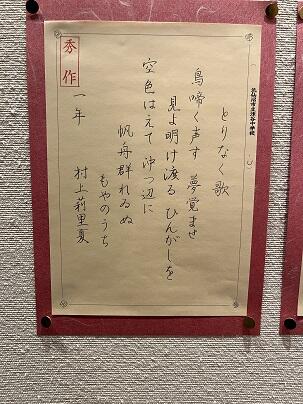 とりなく歌
鳥啼く声す 夢覚ませ
見よ明け渡る ひんがしを
空色はえて 沖つ辺に
帆舟群れゐぬ
もやのうち
秀作
一年 村上莉里夏